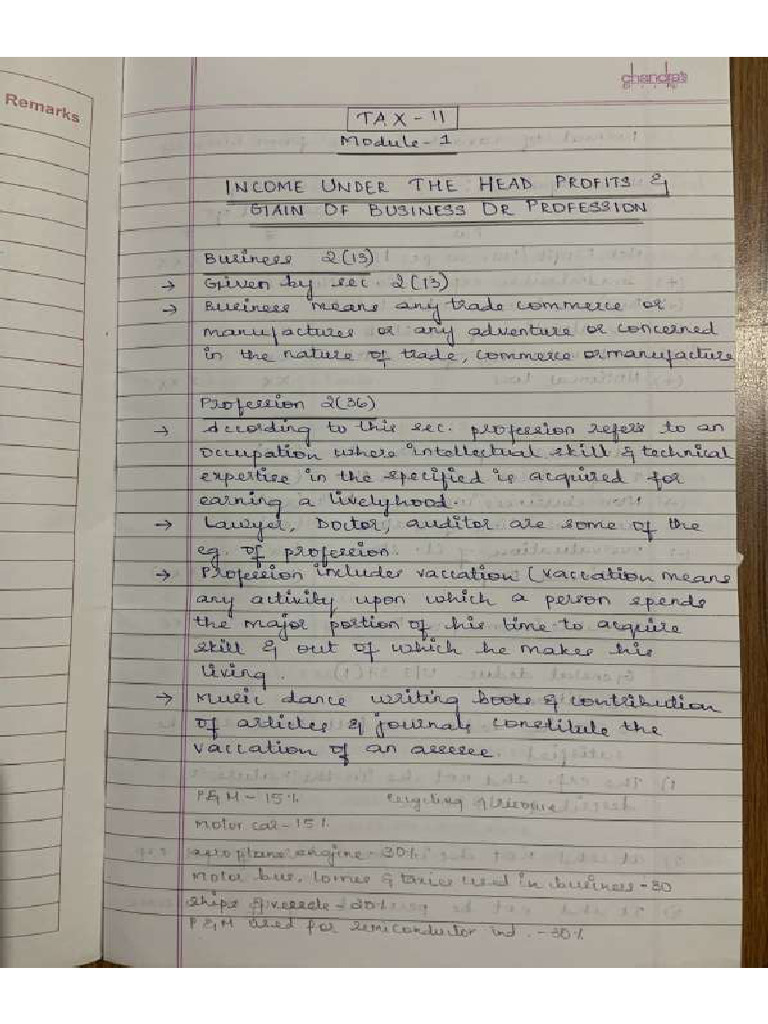 chandra's
Remarks
TAX - 11
Module - 1
INCOME UNDER THE HEAD PROFITS &
GAIN OF BUSINESS OR PROFESSION
Business 2(13)
→ Given by sec. 2(13)
→ Business means any trade commerce or
manufactures or any adventure or concerned
in the nature of trade, commerce or manufacture
Profession 2(36)
→ According to this sec. profession refers to an
Occupation where intellectual skill & technical
expertise in the specified is acquired for
earning a livelyhood.
→ Lawyer, Doctor, auditor are some of the
eg. of profession.
→ Profession includes vaccation (vaccation means
any activity upon which a person spends
the major portion of his time to acquire
skill & out of which he makes his
living.
→ Music dance writing books & contribution
of articles & journals constitute the
vaccation of an assesee.
P&M - 15%
motor car - 15%
aeroplane engine - 30%
motor bus, lorries & taxies used in business - 30
ships & vessels - 20%
P&M used for semiconductor ind. - 30%